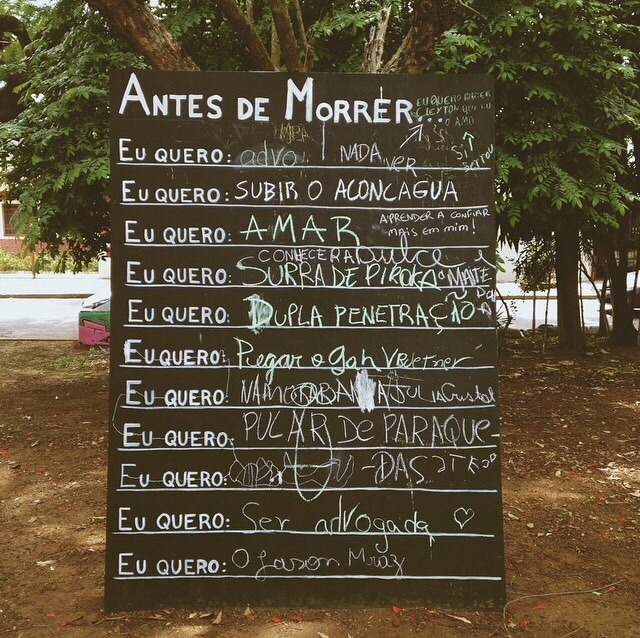 ANTES DE MORRER...
EU QUERO DIZER
CLEYTON QUE EU
O AMO
EU QUERO: advo NADA VER
EU QUERO: SUBIR O ACONCAGUA
EU QUERO: AMAR
APRENDER A CONFIAR
MAIS EM MIM!
CONHECER A DULCE
EU QUERO: SURRA DE PIROKA MAITE
EU QUERO: DUPLA PENETRAÇÃO
EU QUERO: Pegar o gah
EU QUERO:
EU QUERO: PULAR DE PARAQUE-
EU QUERO: -DAS
EU QUERO: Ser advogada ♡
EU QUERO: O Jason Mraz